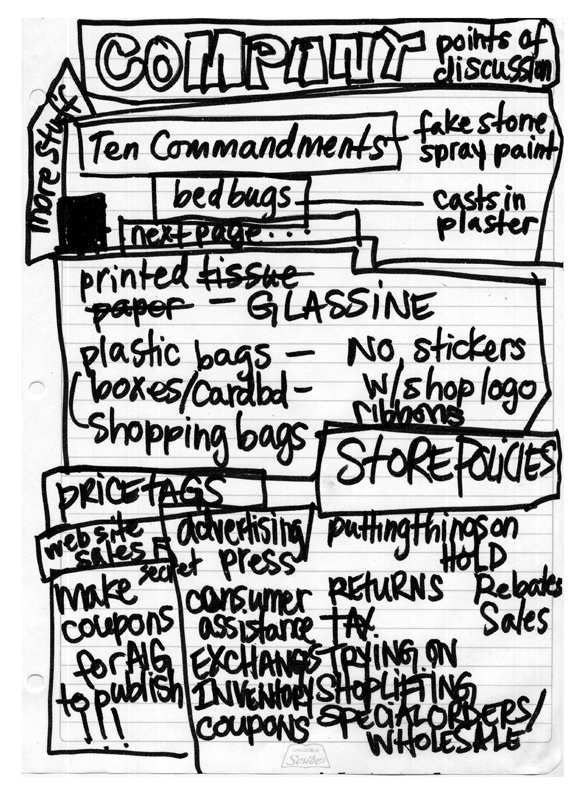 COMPANY points of
discussion
more stuff
Ten Commandments
fake stone
spray paint
bedbugs
casts in
plaster
next page...
printed tissue
paper — GLASSINE
plastic bags — No stickers
boxes/cardbd - w/shop logo
ribbons
shopping bags
STORE POLICIES
PRICETAGS
website
sales
secret
make
coupons
for AIG
to publish
!!!
advertising/
press
consumer
assistance
EXCHANGES
INVENTORY
coupons
putting things on
HOLD
RETURNS
Rebates
Sales
TAX
TRYING ON
SHOPLIFTING
SPECIAL ORDERS/
WHOLESALE
Scribe